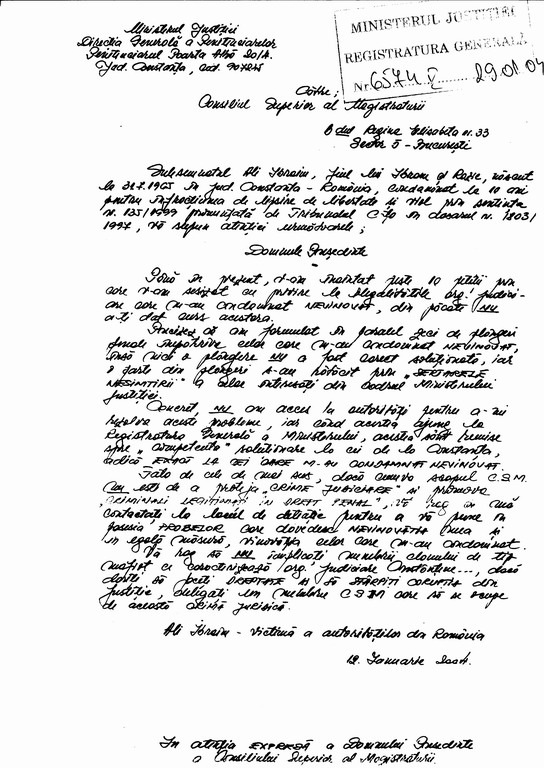 Ministerul Justiţiei
Direcţia Generală a Penitenciarelor
Penitenciarul Poarta Albă
Jud. Constanţa, cod.
MINISTERUL JUSTIŢIEI
REGISTRATURA GENERALĂ
Nr. 6574 29.01.04
Către;
Consiliul Superior al Magistraturii
B dul Regina Elisabeta nr. 33
Sector 5 - Bucureşti
Subsemnatul Ali Ibraim, fiul lui Ibram şi născut
la 31.7.1965 în jud. Constanţa - România, condamnat la 10 ani
pentru infracţiunea de lipsire de libertate şi viol prin sentinţa
n. 135/1999 pronunţată de Tribunalul C-ţa în dosarul n. 1803/
1997, vă supun atenţiei următoarele;
Domnule Preşedinte
Până în prezent, v-am înaintat peste 10 petiţii prin
care v-am sesizat cu privire la ilegalităţile org. judici-
are care m-au condamnat NEVINOVAT, din păcate NU
aţi dat curs acestora.
Precizez că am formulat în paralel zeci de plângeri
penale împotriva celor care m-au condamnat NEVINOVAT,
însă nici o plângere NU a fost corect soluţionată, iar
o parte din plângeri s-au rătăcit prin „SERTARELE
NESIMŢIRII" a celor interesaţi din cadrul Ministerului
Justiţiei.
Concret, NU am acces la autorităţi pentru a-mi
rezolva aceste probleme, iar când acestea ajung la
Registratura Generală a Ministerului, acestea sânt trimise
spre „competentă" soluţionare la cei de la Constanţa,
adică EXACT LA CEI CARE M-AU CONDAMNAT NEVINOVAT.
Faţă de cele de mai sus, dacă cumva scopul C.S.M.
nu este de a proteja CRIME JUDICIARE şi promova
CRIMINALI LEGITIMAŢI ÎN DREPT PENAL", vă rog să mă
contactaţi la locul de detenţie pentru a vă pune în
posesia PROBELOR care dovedesc NEVINOVĂŢIA mea şi
în egală măsură, vinovăţia celor care m-au condamnat.
Vă rog să NU implicaţi membrii clanului de tip
mafiot ce caracterizează org. judiciare Constănţene..., dacă
doriţi să faceţi DREPTATE şi să STÂRPIŢI CORUPŢIA din
Justiţie, delegaţi un membru C.S.M care să se ocupe
de această crimă juridică.
Ali Ibraim - victimă a autorităţilor din România
12. Ianuarie 2004.
În atenţia EXPRESĂ a Domnului Preşedinte
a Consiliului Superior al Magistraturii.